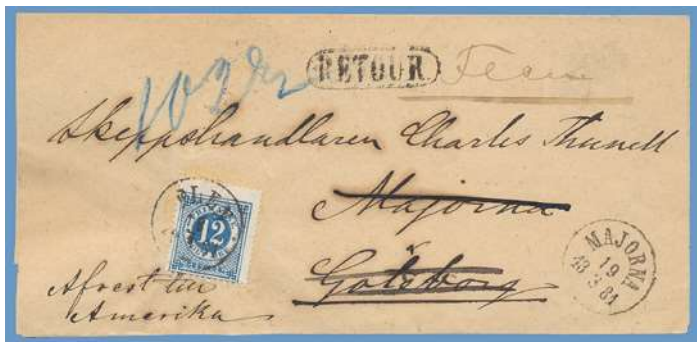 RETOUR
Skeppshandlaren Charles Thunell
Majorna
Göteborg
12
MAJORNA
19
3 81
Afrest till
Amerika